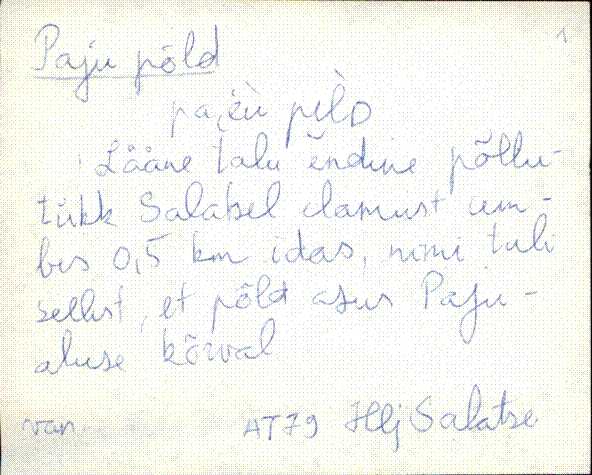 Paju põld
Lääne talu endine põllu-
tükk Salatsel elamust um-
bes 0,5 km idas, nimi tuli
sellest, et põld asus Paju-
aluse kõrval
van AT79 Hlj Salatse